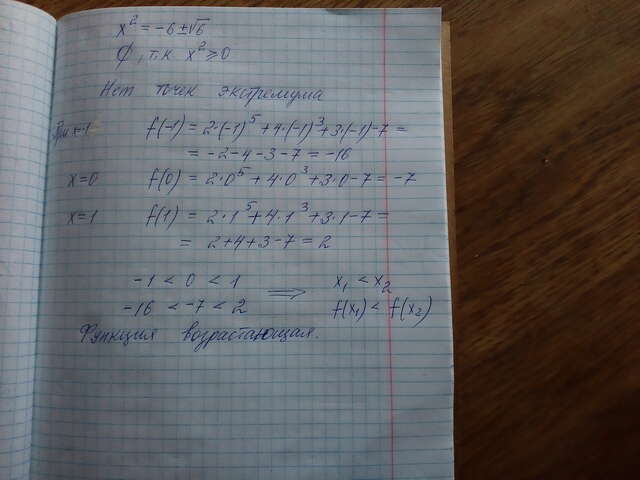 x² = -6 ± √6
∅, т.к x² ≥ 0
Нет точек экстремума
При x=-1 f(-1) = 2·(-1)⁵ + 4·(-1)³ + 3·(-1) - 7 =
= -2-4-3-7 = -16
x=0 f(0) = 2·0⁵ + 4·0³ + 3·0 - 7 = -7
x=1 f(1) = 2·1⁵ + 4·1³ + 3·1 - 7 =
= 2+4+3-7 = 2
-1 < 0 < 1 ⟹ x₁ < x₂
-16 < -7 < 2 f(x₁) < f(x₂)
Функция возрастающая.